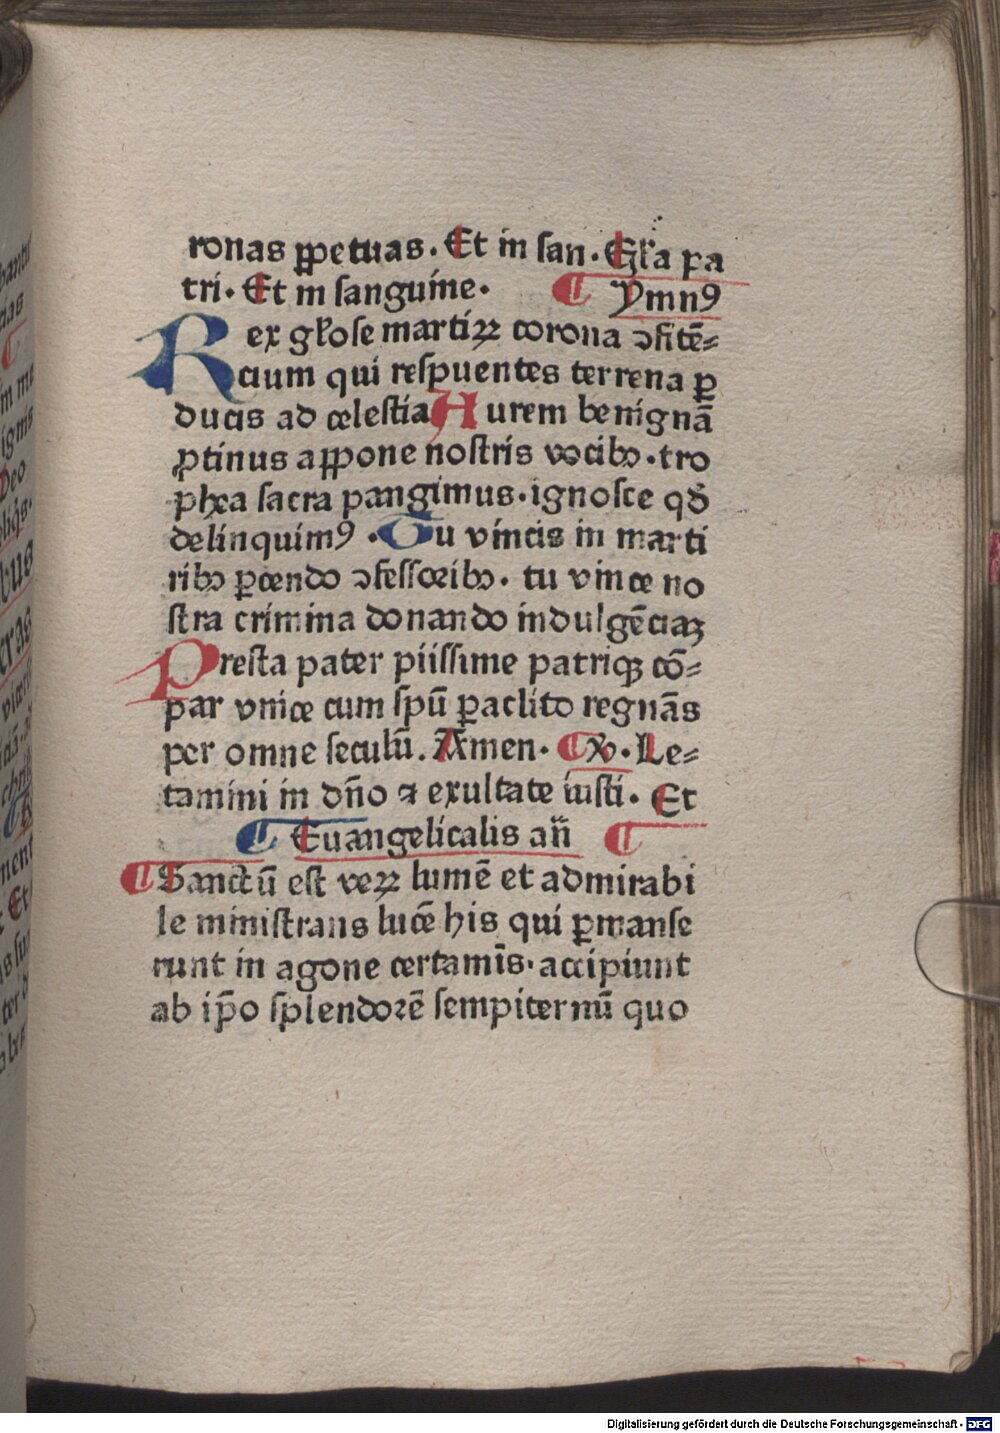 ronas ꝑpetuas. Et in ſan. Gl'a pa
tri. Et in ſanguine. ¶ Ymnꝰ
Rex gl'oſe martiꝝ corona ꝯfitē-
cium qui reſpuentes terrena ꝑ
ducis ad celeſtia Aurem benignā
ꝓtinus appone noſtris vocibꝫ. tro
phea ſacra pangimus. ignoſce qd̄
delinquimꝰ. Tu vincis in marti
ribꝫ ꝑcendo ꝯfeſſoribꝫ. tu vince no
ſtra crimina donando indulgēciaꝫ
Preſta pater piiſſime patriqꝫ cō-
par vnice cum ſpū ꝑaclito regnās
per omne ſeculū. Amen. ¶ ꝟ. Le-
tamini in dn̄o ⁊ exultate iuſti. Et
¶ Euangelicalis an̄ ¶
¶ Sanctū eſt veꝝ lumē et admirabi
le miniſtrans lucē his qui ꝑmanſe
runt in agone certamīs. accipiunt
ab ip̄o ſplendorē ſempiternū quo
Digitalisierung gefördert durch die Deutsche Forschungsgemeinschaft - DFG